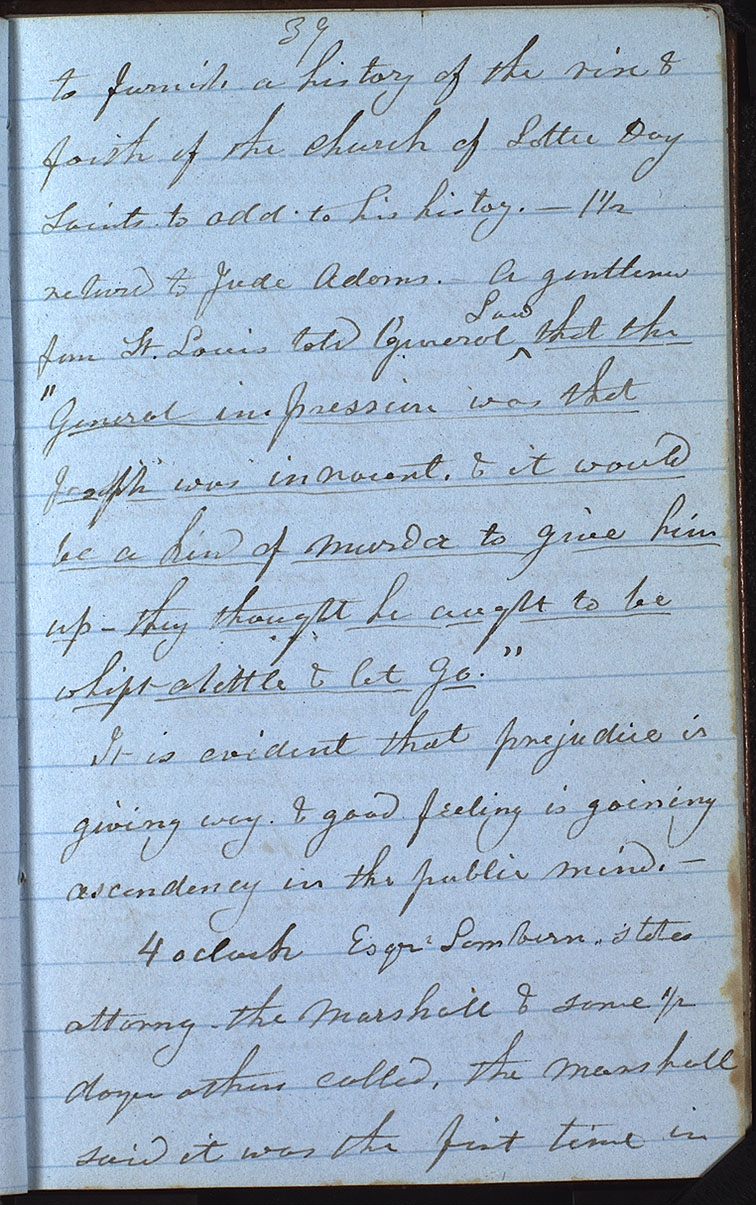 39
to furnish a history of the rise &
faith of the church of Latter Day
Saints to add to his history. — 1 1/2
returned to Jude Adams. — A gentlemen
from St. Louis told General Law ^ that the
"General impression was that
Joseph was innocent. & it would
be a kind of murder to give him
up — they thought he aught to be
whipt a little & let go."
It is evident that prejudice is
giving way. & good feeling is gaining
ascendency in the public mind. —
4 oclock Esqr Lamborn. states
attorny — the Marshall & some 1/2
dozen others called. the marshall
said it was the first time in